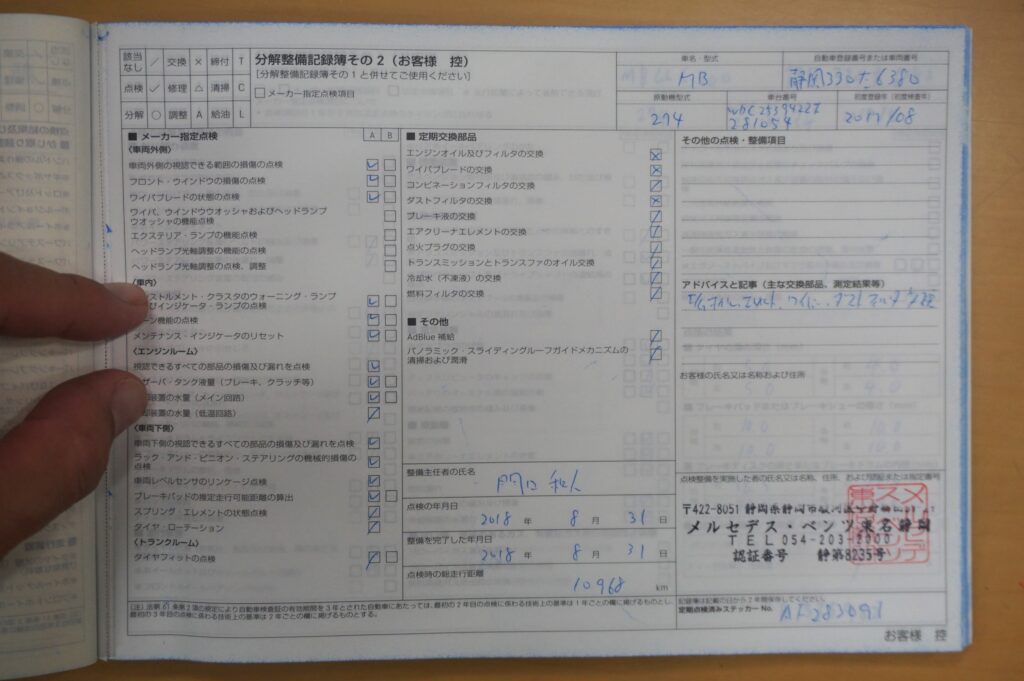 該当なし ／ 交換 × 締付 T
点検 ✓ 修理 △ 清掃 C
分解 ○ 調整 A 給油 L
分解整備記録簿その2（お客様 控）
[分解整備記録簿その1と併せてご使用ください]
□ メーカー指定点検項目
車名・型式
MB
自動車登録番号または車両番号
静岡330た6380
原動機型式
274
車台番号
281054
初度登録年（初度検査年）
2017/08
■ メーカー指定点検 A B
〈車両外側〉
車両外側の視認できる範囲の損傷の点検
フロント・ウインドウの損傷の点検
ワイパブレードの状態の点検
ワイパ、ウインドウウオッシャおよびヘッドランプ
ウオッシャの機能点検
エクステリア・ランプの機能点検
ヘッドランプ光軸調整の機能の点検
ヘッドランプ光軸調整の点検、調整
〈車内〉
ストルメント・クラスタのウォーニング・ランプ
びインジケータ・ランプの点検
ーン機能の点検
メンテナンス・インジケータのリセット
〈エンジンルーム〉
視認できるすべての部品の損傷及び漏れを点検
ザーバ・タンク液量（ブレーキ、クラッチ等）
装置の水量（メイン回路）
却装置の水量（低温回路）
〈車両下側〉
車両下側の視認できるすべての部品の損傷及び漏れを点検
ラック・アンド・ピニオン・ステアリングの機械的損傷の
点検
車両レベルセンサのリンケージ点検
ブレーキパッドの推定走行可能距離の算出
スプリング・エレメントの状態点検
タイヤ・ローテーション
〈トランクルーム〉
タイヤフィットの点検
■ 定期交換部品
エンジンオイル及びフィルタの交換
ワイパブレードの交換
コンビネーションフィルタの交換
ダストフィルタの交換
ブレーキ液の交換
エアクリーナエレメントの交換
点火プラグの交換
トランスミッションとトランスファのオイル交換
冷却水（不凍液）の交換
燃料フィルタの交換
■ その他
AdBlue 補給
パノラミック・スライディングルーフガイドメカニズムの
清掃および潤滑
整備主任者の氏名
点検の年月日
2018 年 8 月 31 日
整備を完了した年月日
2018 年 8 月 31 日
点検時の総走行距離
10968 km
その他の点検・整備項目
アドバイスと記事（主な交換部品、測定結果等）
お客様の氏名又は名称および住所
点検整備を実施した者の氏名又は名称、住所、および認証または指定番号
〒422-8051 静岡県静岡市駿河区
メルセデス・ベンツ東名静岡
TEL 054-203-2000
認証番号 静第8235号
記録簿は記載の日から2年間保存してください。
定期点検済みステッカー No. AF283091
（注）法第61条第2項の規定により自動車検査証の有効期間を3年とされた自動車にあたっては、最初の2年目の点検に係わる技術上の基準は1年ごとの欄に掲げるものとし、
最初の3年目の点検に係わる技術上の基準は2年ごとの欄に掲げるものとする。
お客様 控